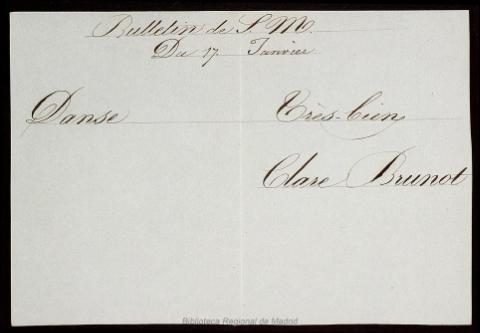 Bulletin de S. M.
Du 17. Janvier
Danse Très-bien
Clare Brunot
Biblioteca Regional de Madrid